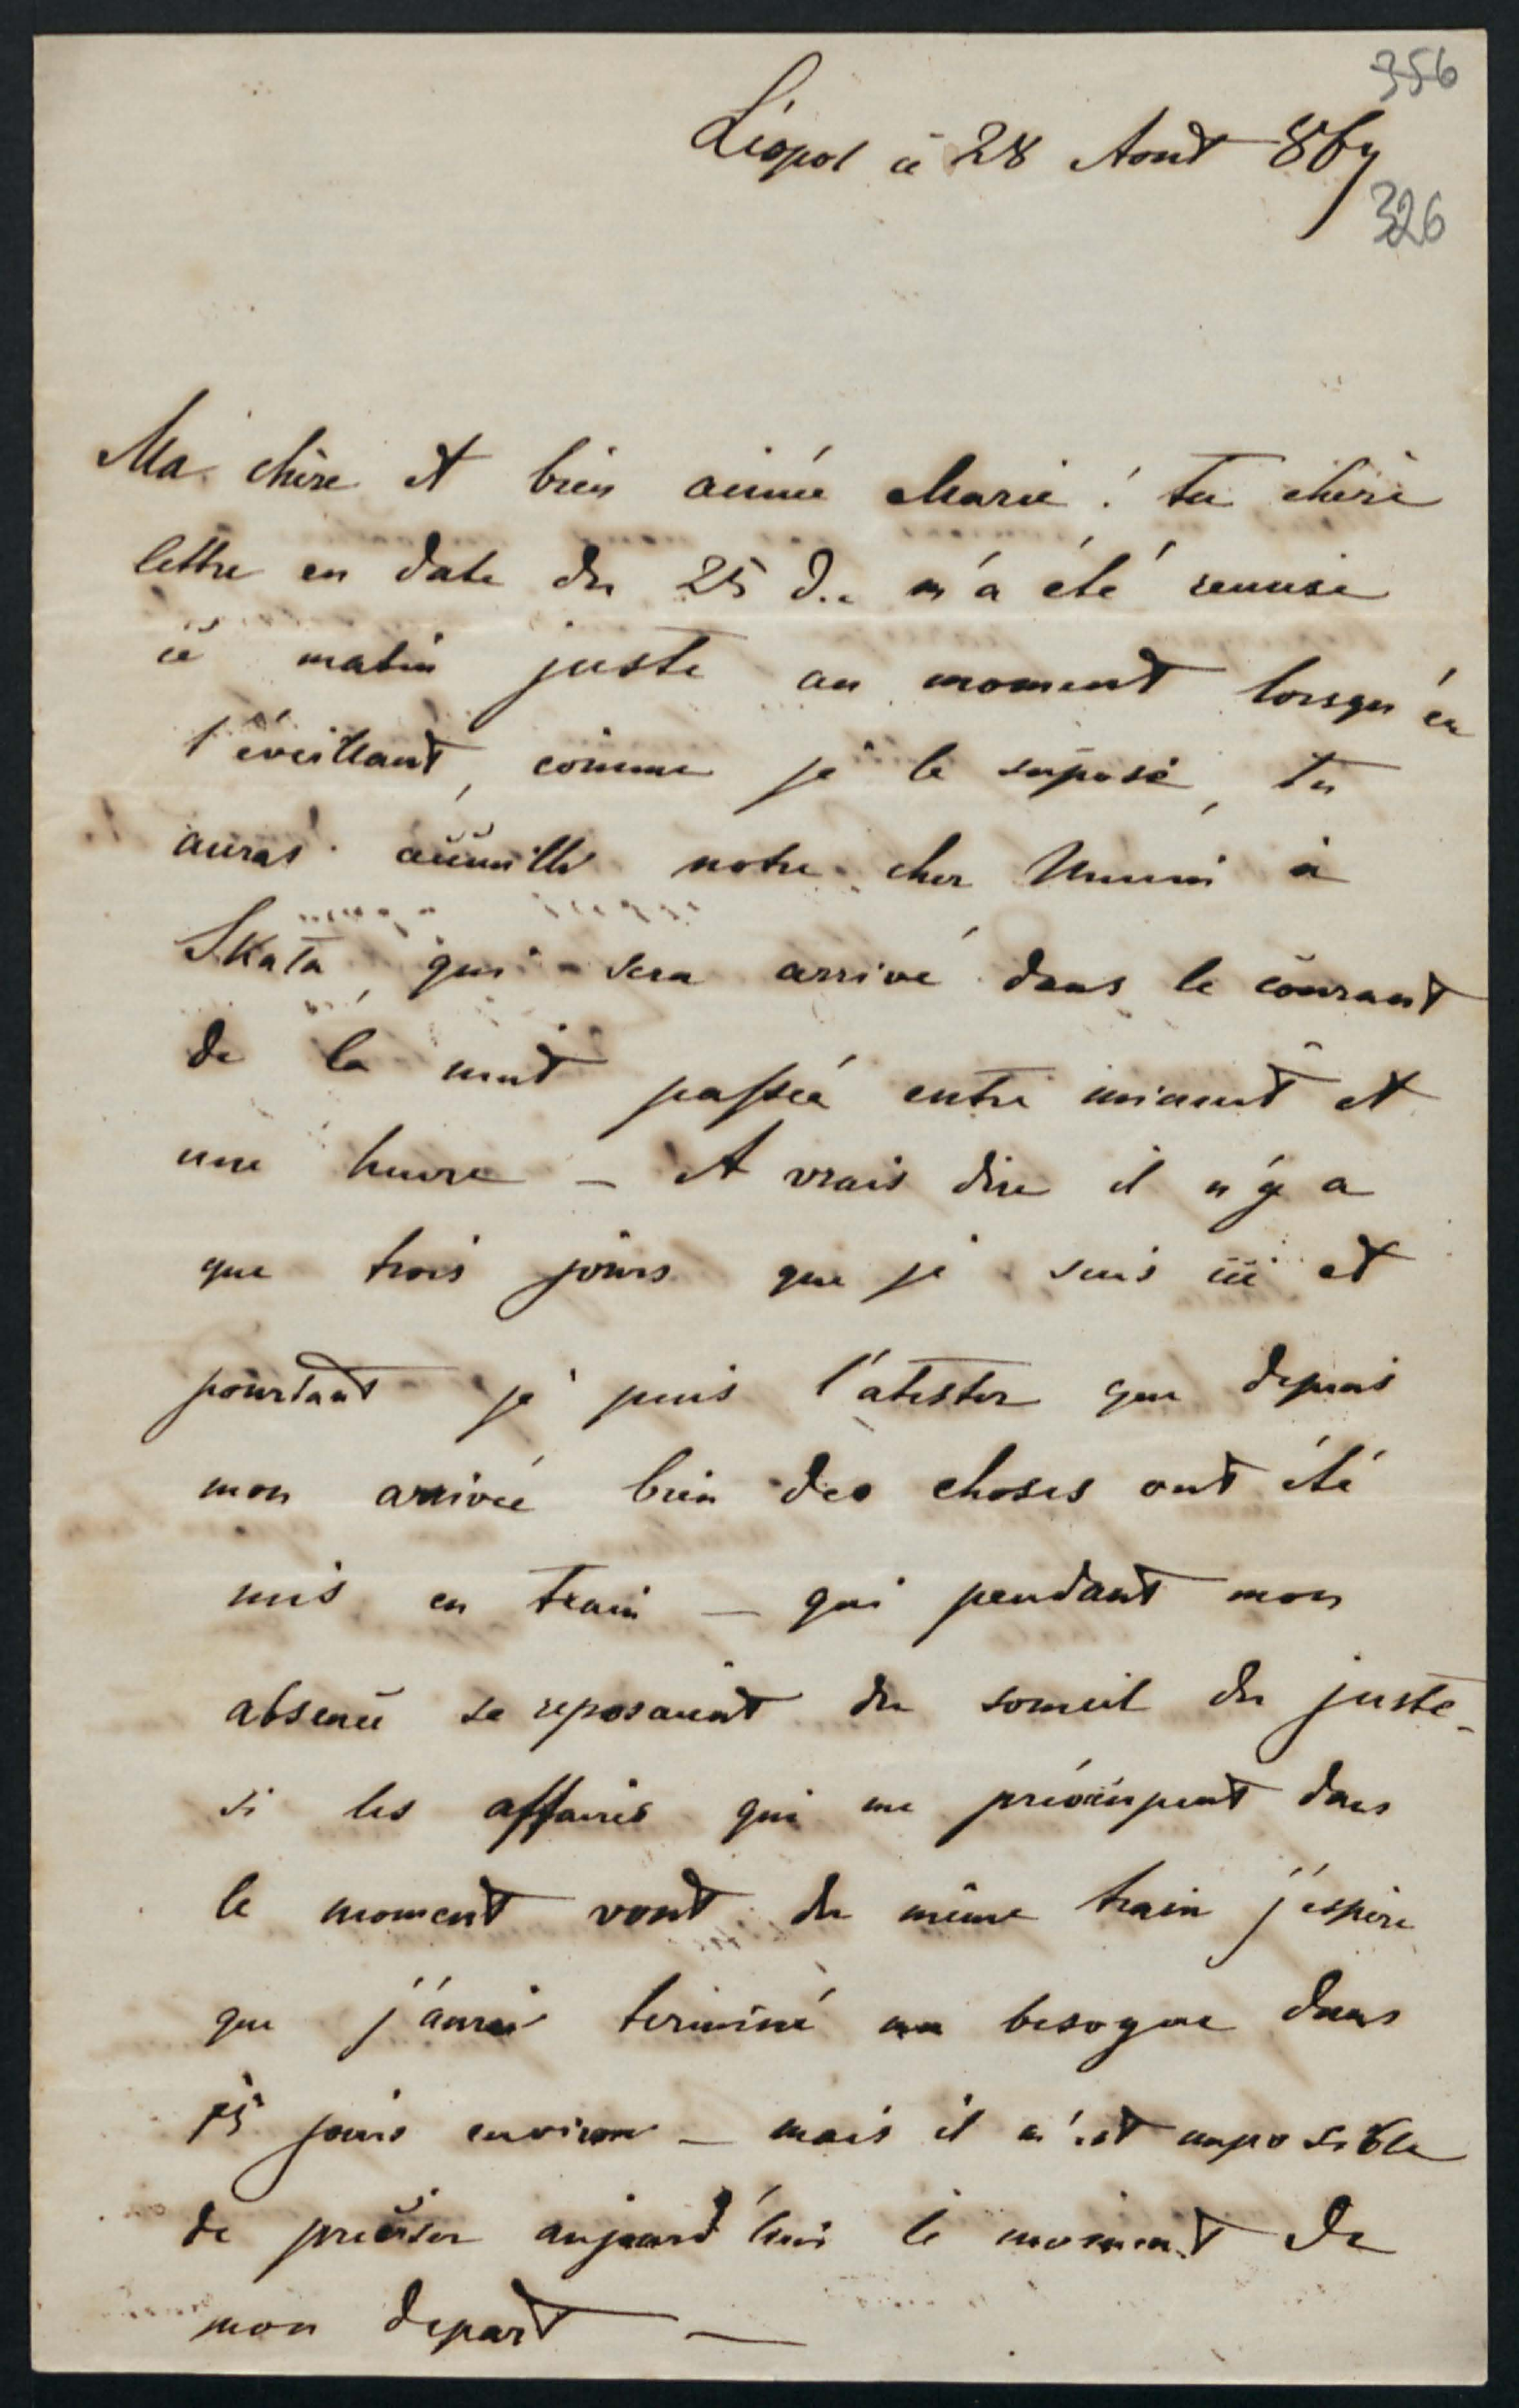 356
Léopol ce 28 Aout 867
326
Ma chère et bien aimée Marie! ta chère
lettre en date du 25 d.c m'a été remise
ce matin juste au moment lorsqu'en
t'éveillant, comme je le supose, tu
auras acceuilli notre cher Mimi à
Skala, qui sera arrivé dans le courant
de la nuit passée entre minuit et
une heure — A vrais dire il n'y a
que trois jours que je suis ici et
pourtant je puis t'atester que depuis
mon arrivée bien des choses ont été
mis en train — qui pendant mon
absence se reposaient du someil du juste -
si les affaires qui me préoccupent dans
le moment vont du même train j'espère
que j'aurai terminé ma besogne dans
jours environ — mais il m'est imposible
de preciser aujourd'hui le moment de
mon depart —